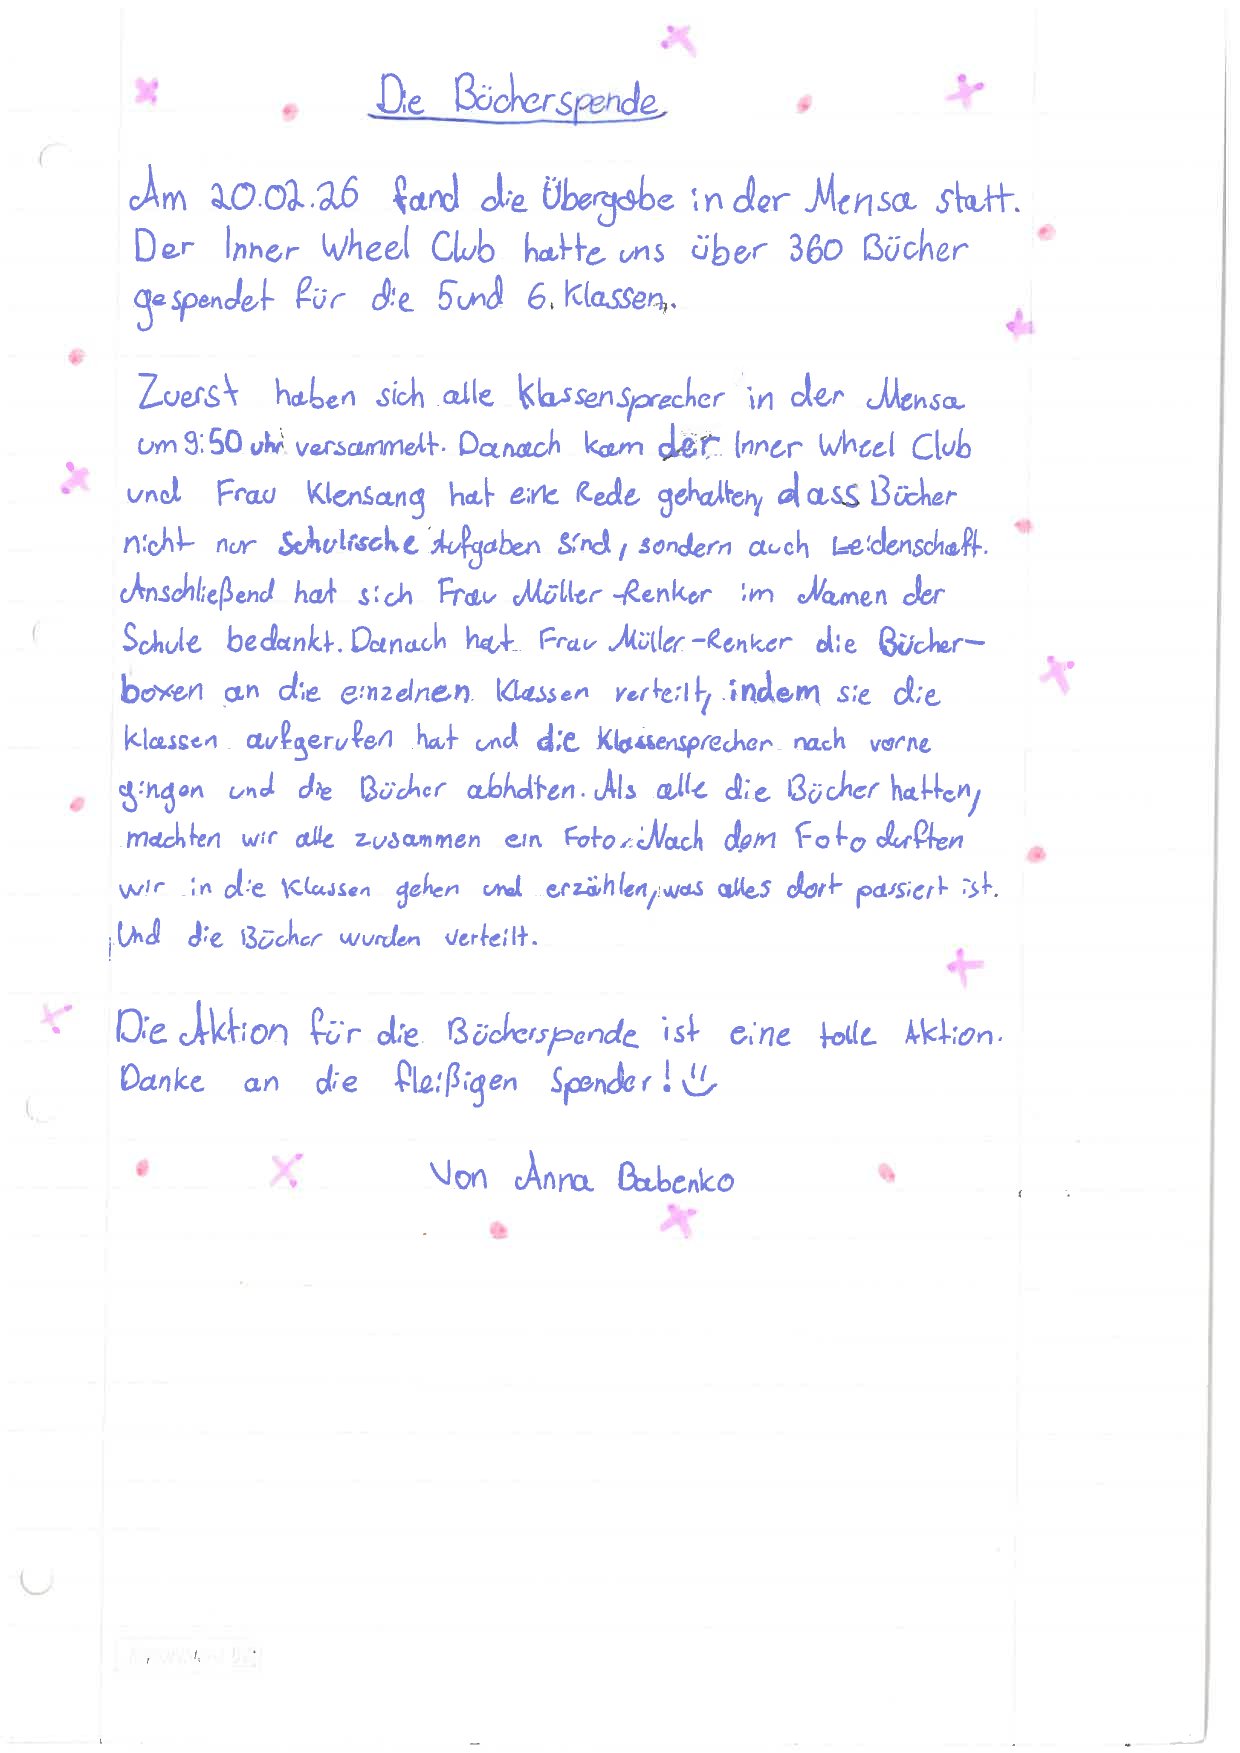 Die Bücherspende
Am 20.02.26 fand die Übergabe in der Mensa statt.
Der Inner Wheel Club hatte uns über 360 Bücher
gespendet für die 5 und 6. Klassen.
Zuerst haben sich alle Klassensprecher in der Mensa
um 9:50 uhr versammelt. Danach kam der Inner Wheel Club
und Frau Klensang hat eine Rede gehalten, dass Bücher
nicht nur Schulische Aufgaben sind, sondern auch Leidenschaft.
Anschließend hat sich Frau Müller-Renker im Namen der
Schule bedankt. Danach hat Frau Müller-Renker die Bücher-
boxen an die einzelnen Klassen verteilt, indem sie die
Klassen aufgerufen hat und die Klassensprecher nach vorne
gingen und die Bücher abholten. Als alle die Bücher hatten,
machten wir alle zusammen ein Foto. Nach dem Foto durften
wir in die Klassen gehen und erzählen, was alles dort passiert ist.
Und die Bücher wurden verteilt.
Die Aktion für die Bücherspende ist eine tolle Aktion.
Danke an die fleißigen Spender!
Von Anna Babenko